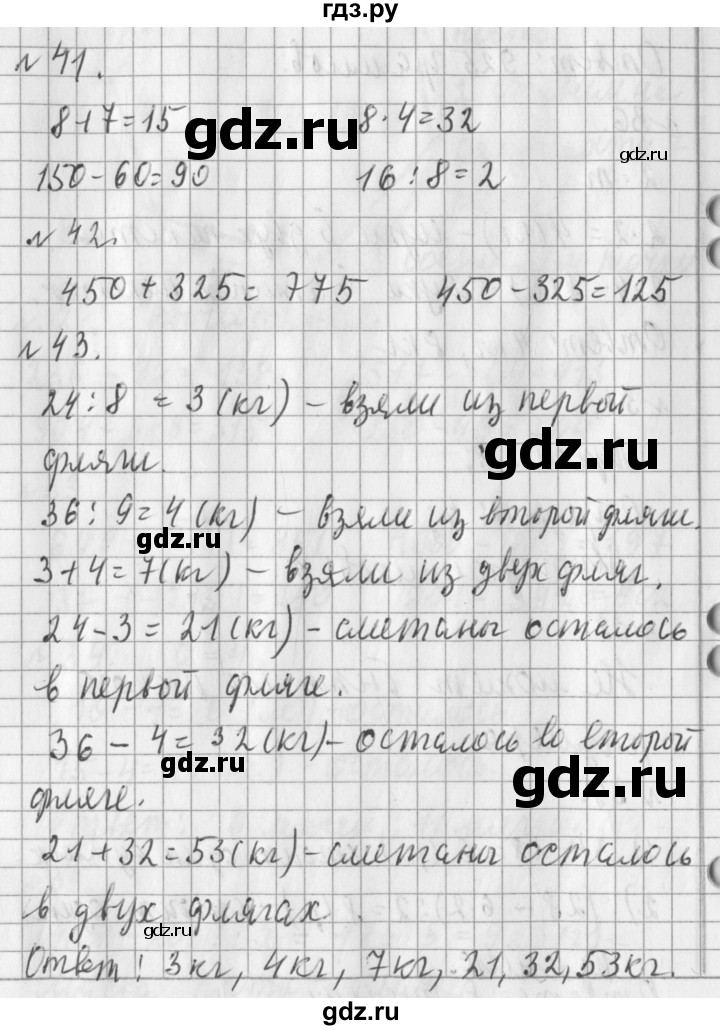 гдз.ру
№41.
8+7=15 8·4=32
gdz.ru gdz.ru
gdz.ru
150-60=90 16:8=2
№42.
450+325=775 450-325=125
№43.
24:8=3(кг) – взяли из первой
gdz.ru
фляги.
36:9=4(кг) – взяли из второй фляги.
gdz.ru
3+4=7(кг) – взяли из двух фляг.
24-3=21(кг) – сметаны осталось
в первой фляге.
36-4=32(кг) – осталось во второй
gdz.ru
gdz.ru
фляге.
21+32=53(кг) – сметаны осталось
в двух флягах.
gdz.ru
Ответ: 3кг, 4кг, 7кг, 21, 32, 53кг.
gdz.ru